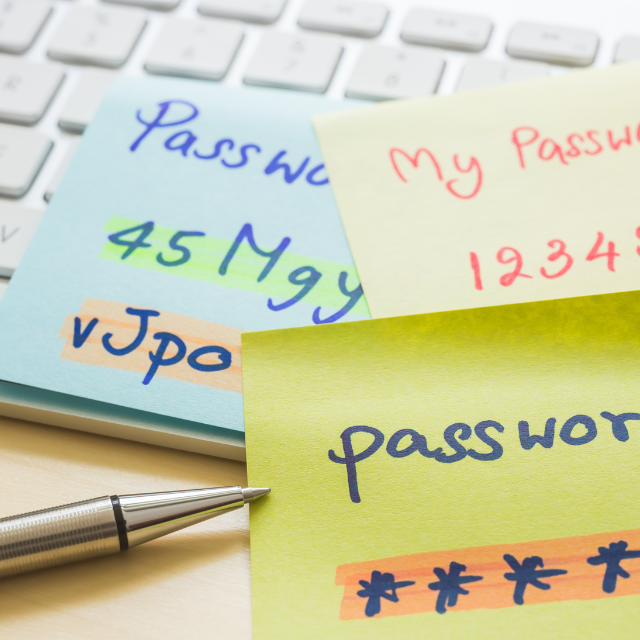 Passwo
45 Mgy
vJpo
My Passw
1234
passwor
****